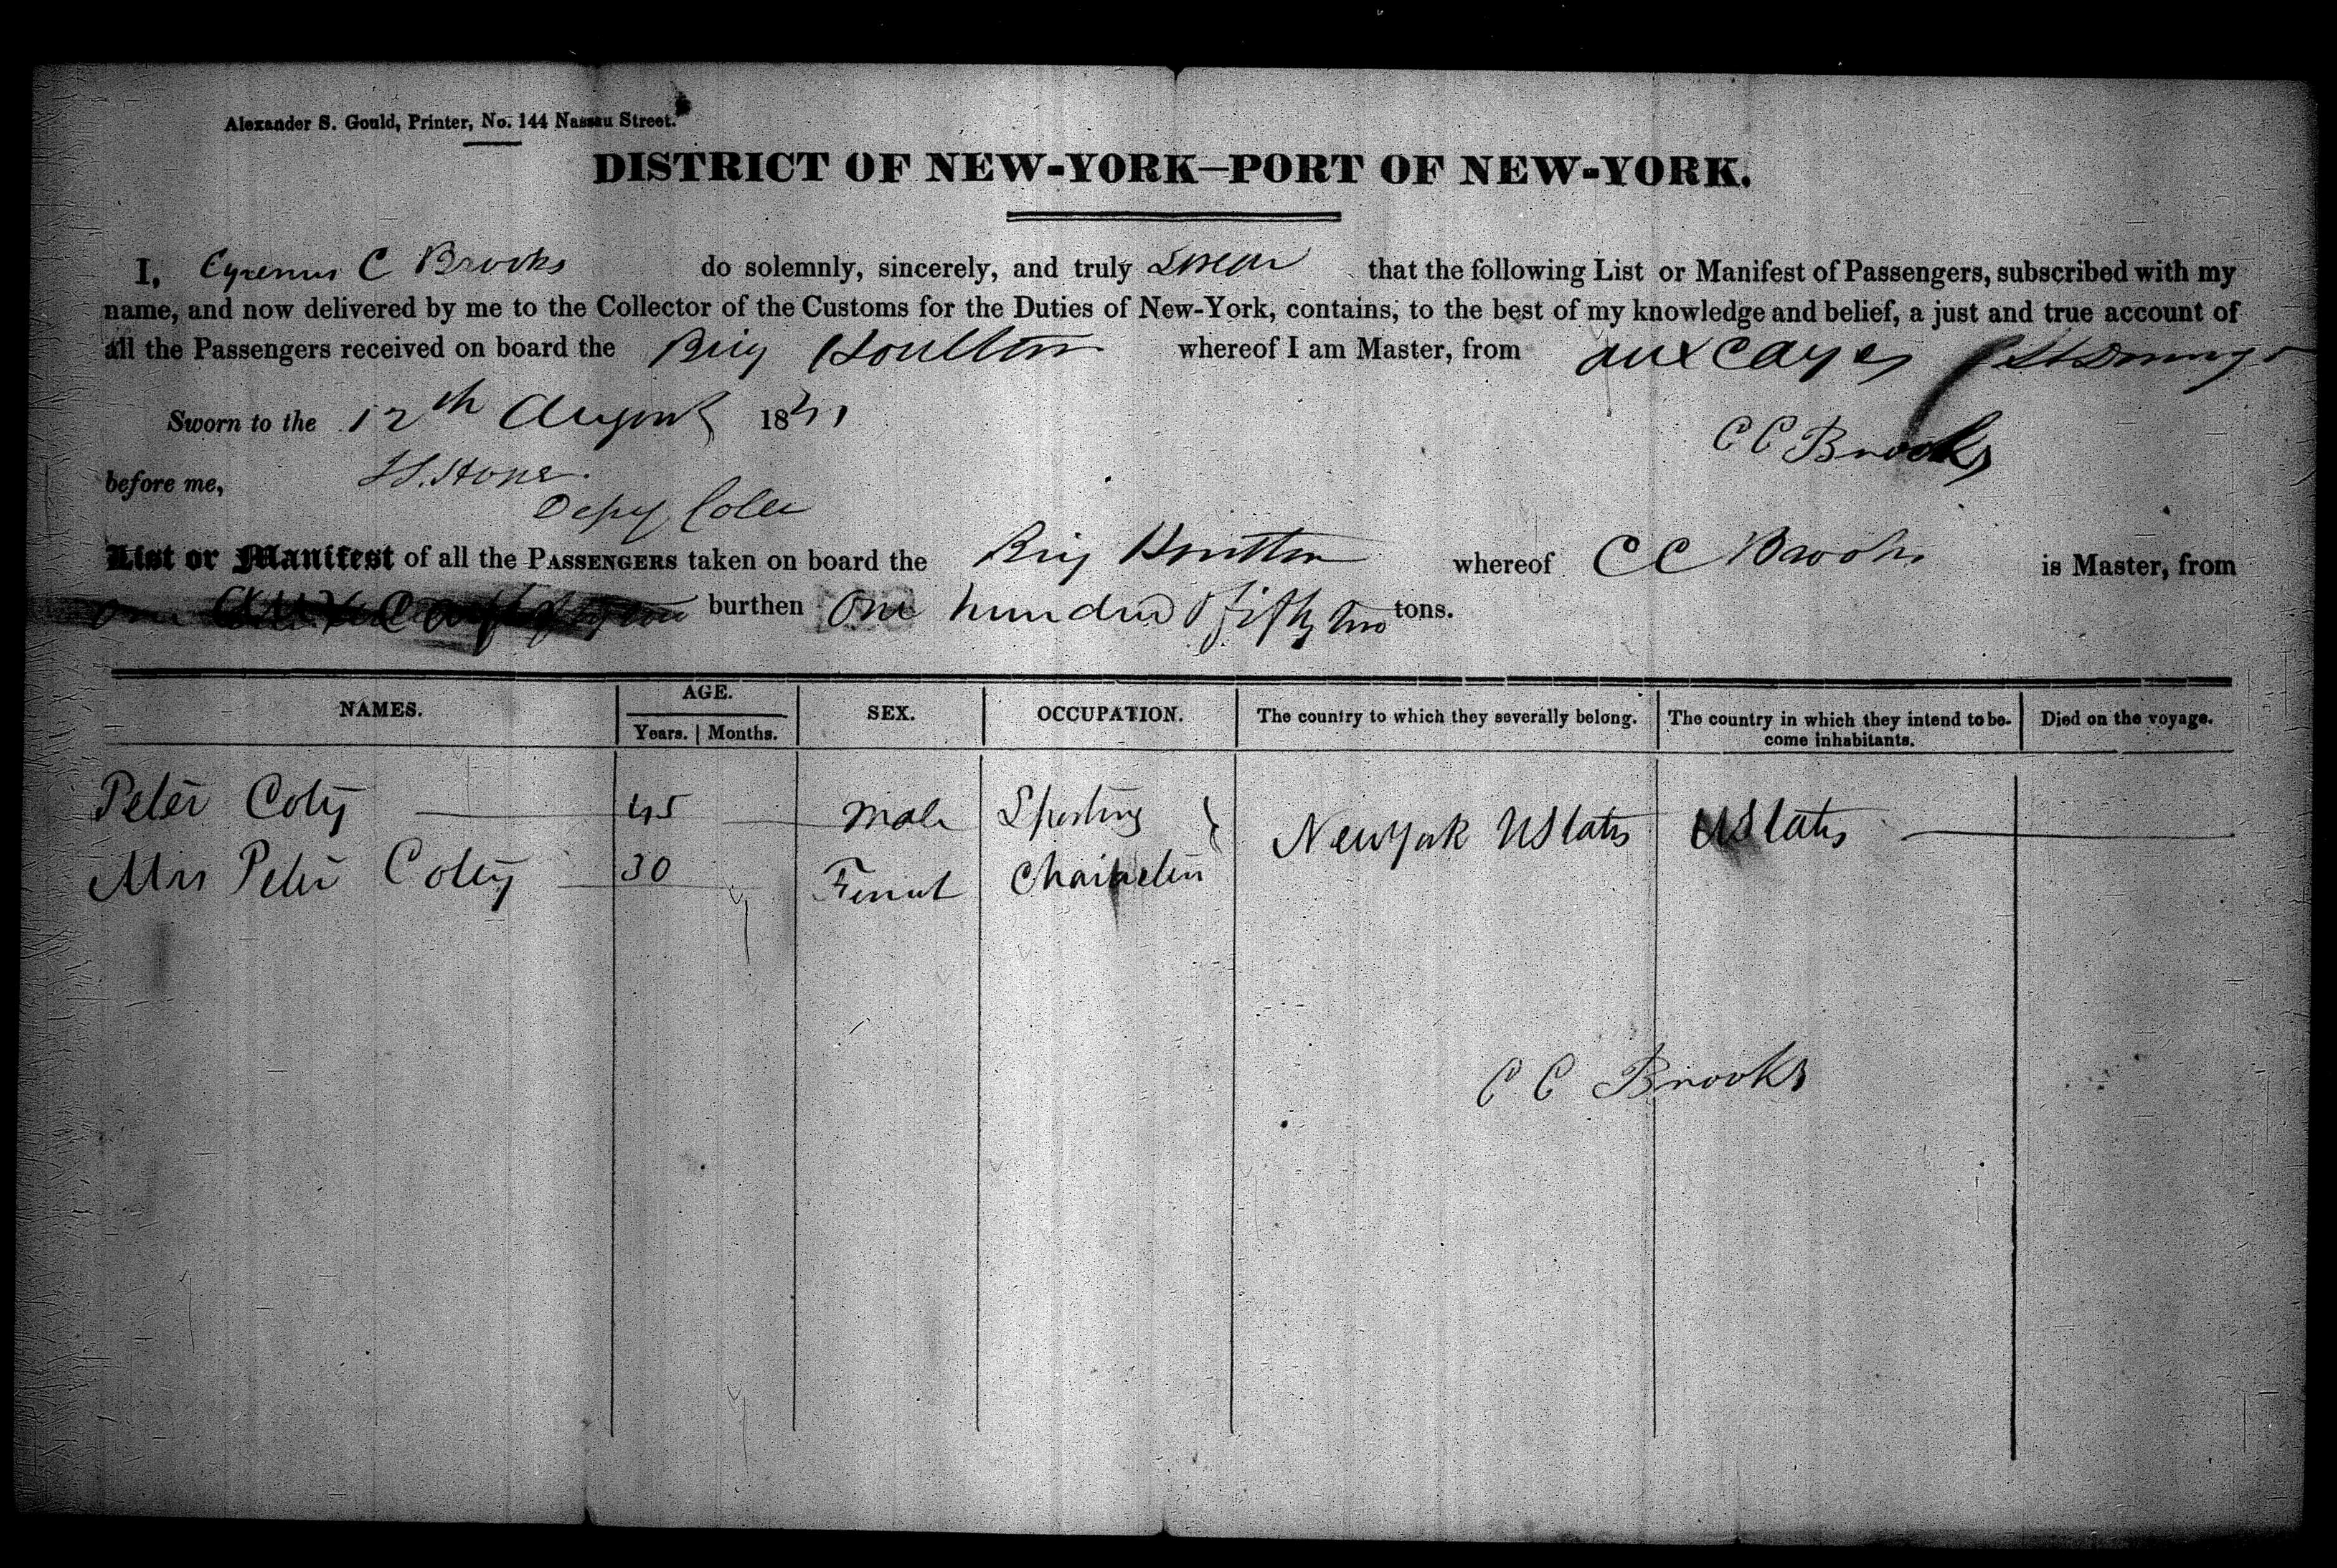 Alexander S. Gould, Printer, No. 144 Nassau Street.
DISTRICT OF NEW-YORK—PORT OF NEW-YORK.
I, Cyrenus C Brooks do solemnly, sincerely, and truly Swear that the following List or Manifest of Passengers, subscribed with my
name, and now delivered by me to the Collector of the Customs for the Duties of New-York, contains, to the best of my knowledge and belief, a just and true account of
all the Passengers received on board the Brig Houlton whereof I am Master, from aux Cayes St Domingo
Sworn to the 12th August 1841 C C Brooks
before me,
Depy Colle
List or Manifest of all the PASSENGERS taken on board the Brig Houlton whereof C C Brooks is Master, from
burthen One hundred fifty two tons.
NAMES. AGE. SEX. OCCUPATION. The country to which they severally belong. The country in which they intend to be- Died on the voyage.
Years. | Months. come inhabitants.
Peter Coty 45 Male Sporting New York U States U States
Mrs Peter Coty 30 Femal
C C Brooks